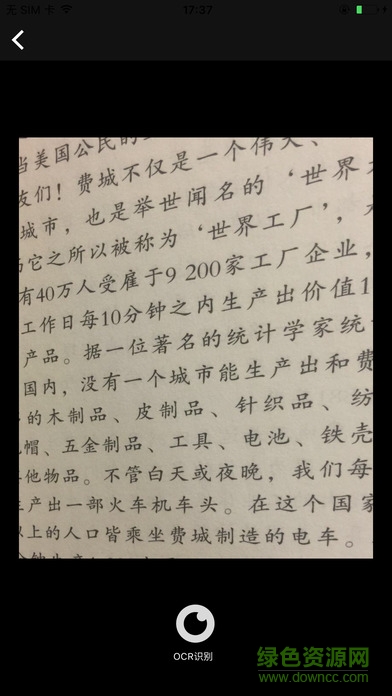 无 SIM 卡
17:37
当美国公民的
友们！费城不仅是一个伟大、
城市，也是举世闻名的‘世界
它之所以被称为‘世界工厂’，
有40万人受雇于9 200家工厂企业，
工作日每10分钟之内生产出价值1
产品。据一位著名的统计学家统
国内，没有一个城市能生产出和费
的木制品、皮制品、针织品、纺
帽、五金制品、工具、电池、铁壳
他物品。不管白天或夜晚，我们每
产出一部火车机车头。在这个国家
以上的人口皆乘坐费城制造的电车。
OCR识别
绿色资源网
www.downcc.com